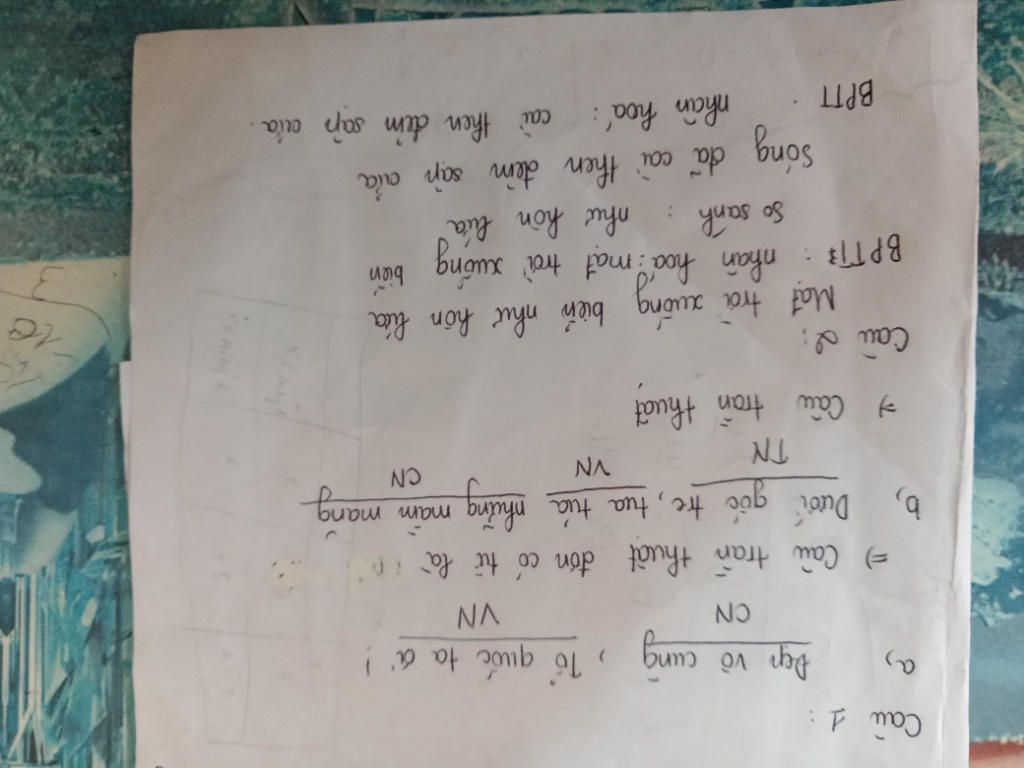 Câu 1 :
a, Đẹp vô cùng , Tổ quốc ta ơi !
CN VN
=> Câu trần thuật đơn có từ là
b, Dưới gốc tre, tua tủa những mầm măng
TN VN CN
=> Câu trần thuật
Câu 2 :
Mặt trời xuống biển như hòn lửa
BPTT : nhân hoá : mặt trời xuống biển
so sánh : như hòn lửa
Sóng đã cài then đêm sập cửa
BPTT : nhân hoá : cài then đêm sập cửa.